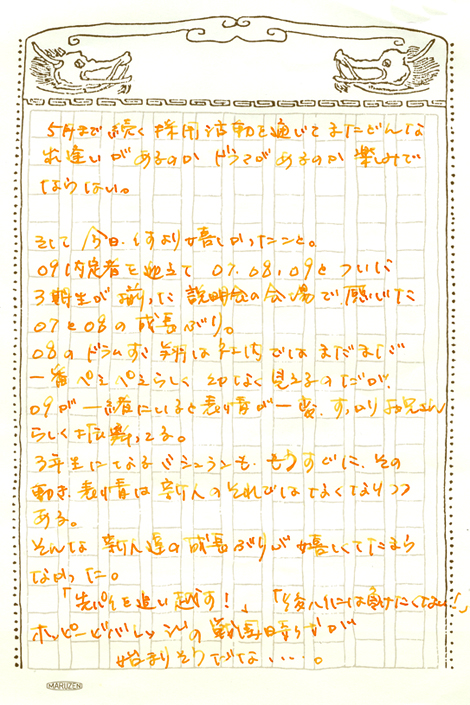 5月まで続く採用活動を通じてまたどんな
出逢いがあるのかドラマがあるのか楽しみで
ならない。
そして今日、何より嬉しかったこと。
09内定者を迎えて07.08.09とついに
3期生が揃った説明会の会場で感じた
07と08の成長ぶり。
08のドラムすこ翔は社内ではまだまだ
一番ペえペえらしく幼なく見えるのだが、
09が一緒にいると表情が一変、すっかりお兄さん
らしく振舞ってる。
3年生になるバシュランも、もうすぐに、その
動き、表情は新人のそれではなくなりつつ
ある。
そんな新人達の成長ぶりが嬉しくてたまら
なかった。
「先パイを追い越す!」「後ハイには負けたくない!」
ホッピービバレッジの戦国時代が
始まりそうだな….。
MARUZEN